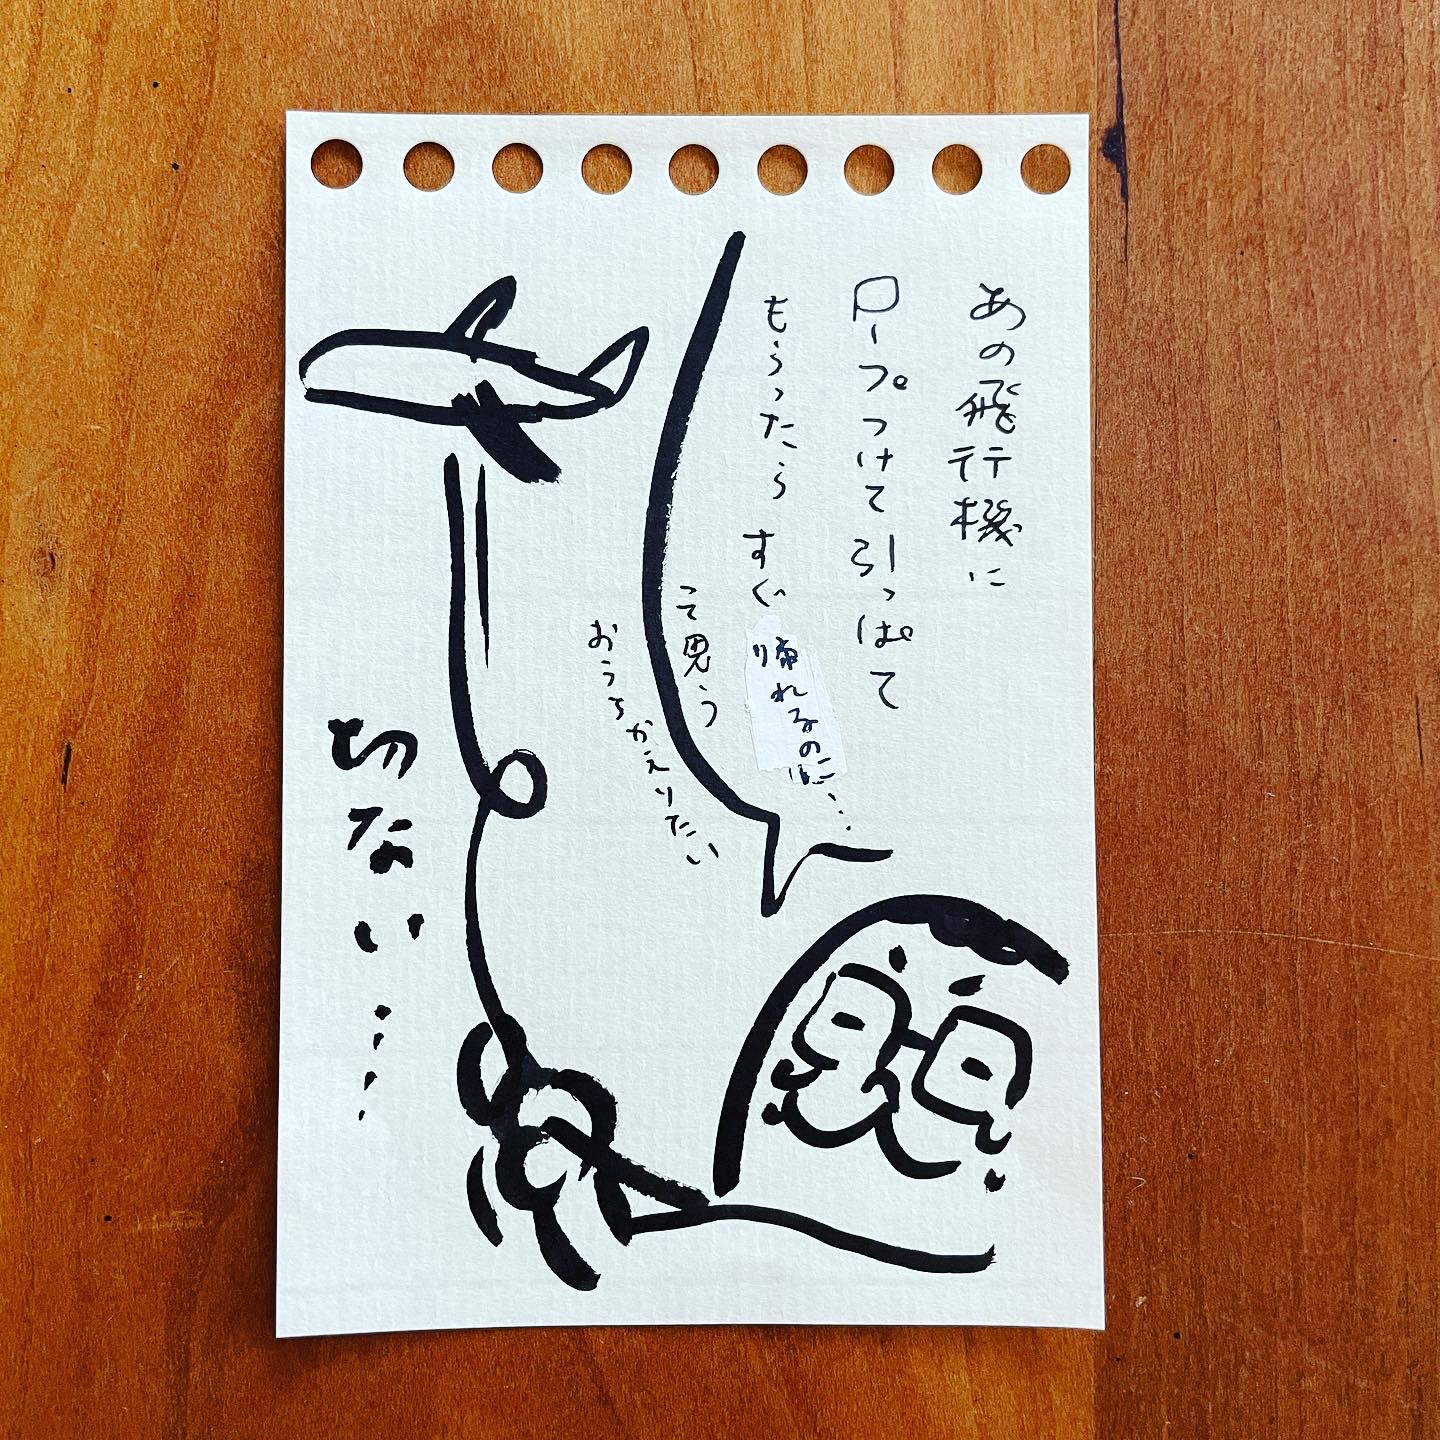 あの飛行機に
ロープつけて引っぱて
もらったら すぐ帰れるのに…
って思う
おうちかえりたい
切ない…